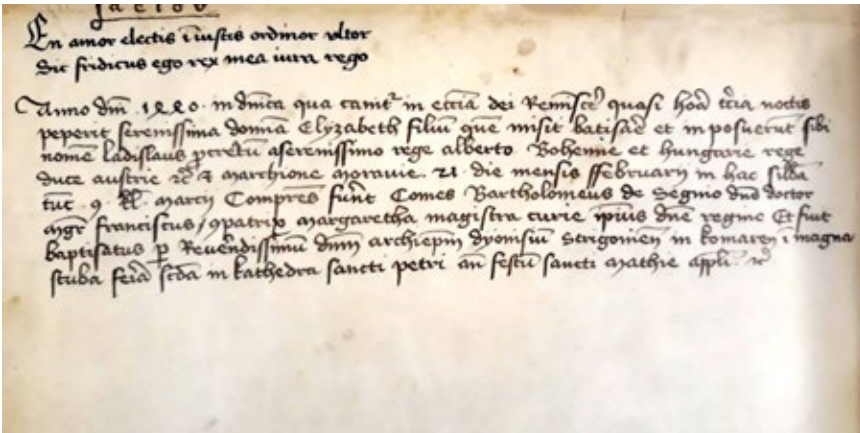 En amor electis iniustis ordinor ultor
Sic fridicus ego rex mea iura rego
Anno dm̄ 1440 in dn̄ica qua canit᷑ in ecc̄ia dei Remīsce᷑ quasi hora t̄cia noctis
peperit serenissima domīa Elyzabeth filiū quē misit batisar̄e et imposuerūt sibi
nomē ladislaus p̱creatū a serenissimo rege alberto Bohemie et Hungarie rege
duce austrie ꝛc̄ & marchione moravie. 21. die mensis ffebruarii in hac
tūc 9 kl̄. marcii Compr̄es fuer̄t Comes Bartholomeus de Segnio dn̄s doctor
Mgr̄ Franciscus, ꝯpatrix Margaretha magistra curie ip̄ius dn̄e regine Et fuit
baptisatus ꝑ Reuerendissimū dn̄m archiep̄m dyonisiū Strigoniēn̄ in komaren ī magna
stuba fer̄ia sc̄da in kathedra sancti petri an̄ festū sancti Mathie app̄li ꝛc̄